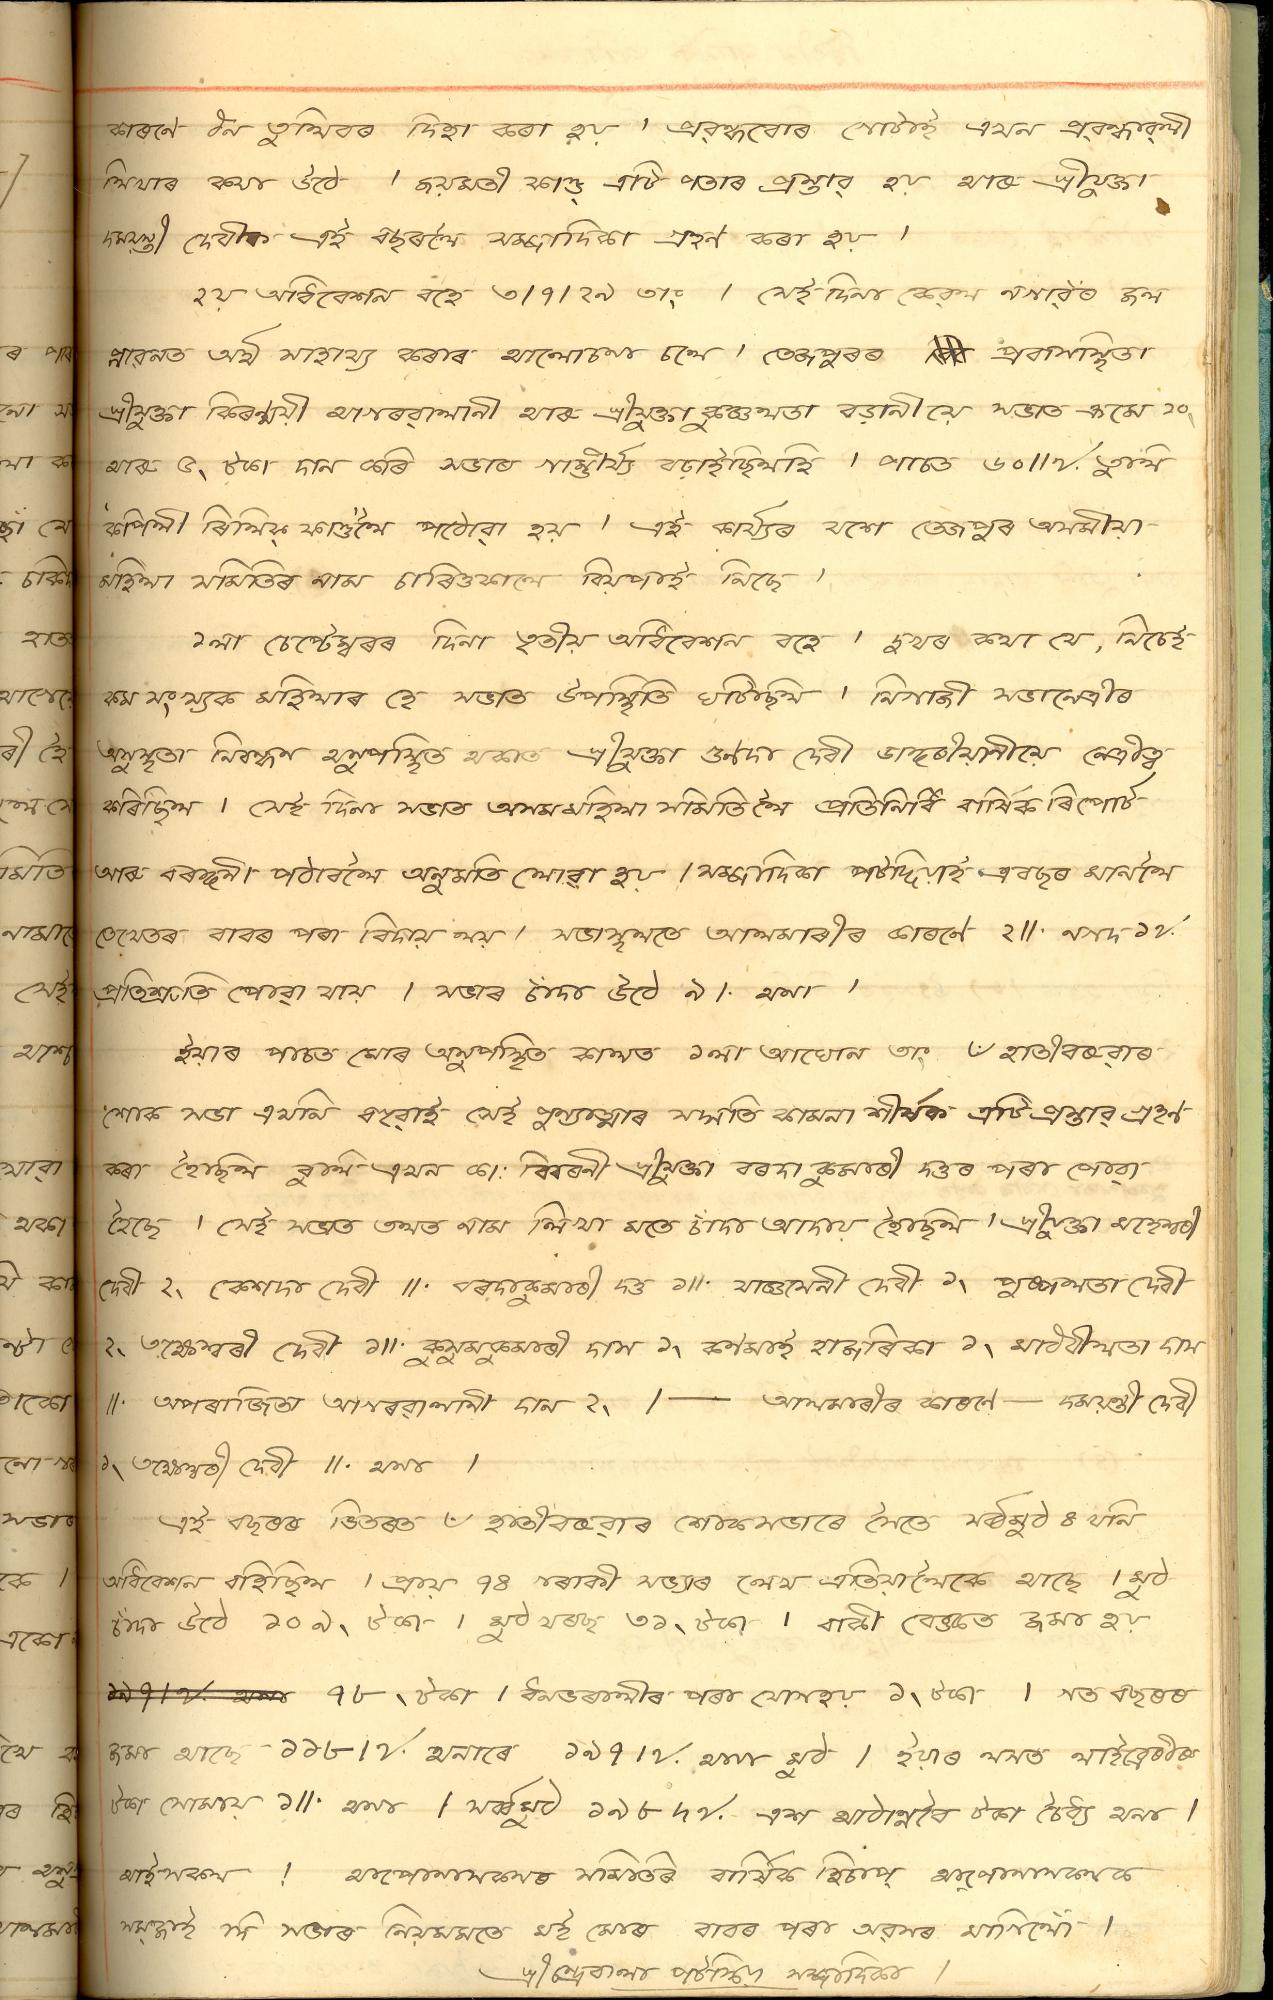 কাৰণে ধন তুলিবৰ দিহা কৰা হয় । প্ৰৱন্ধবোৰ গোটাই এখন প্ৰৱন্ধাৱলী
লিখাৰ কথা উঠে । জয়মতী ফাণ্ড্ এটি পতাৰ প্ৰস্তাৱ হয় আৰু শ্ৰীযুক্তা
দময়ন্তী দেবীক এই বছৰলৈ সম্পাদিকা গ্ৰহণ কৰা হয় ।
২য় অধিবেশন বহে ৩।৭।২৯ তাং । সেই দিনা কেৱল নগাৱঁৰ জল
প্লাৱনত অৰ্থ সাহায্য কৰাৰ আলোচনা চলে । তেজপুৰৰ প্ৰবাসস্থিতা
শ্ৰীযুক্তা কিৰণ্ময়ী আগৰৱালানী আৰু শ্ৰীযুক্তা কুঞ্জলতা বড়ানীয়ে সভাত ক্ৰমে ২০৲
আৰু ৫৲ টকা দান কৰি সভাৰ গাম্ভীৰ্য্য বঢ়াইছিলহি । পাচত ৬০॥৵. তুলি
কপিলী ৰিলিফ্ ফাণ্ডলৈ পঠোৱা হয় । এই কাৰ্য্যৰ যশে তেজপুৰ অসমীয়া
মহিলা সমিতিৰ নাম চাৰিওফালে বিয়পাই নিছে ।
১লা চেপ্টেম্বৰৰ দিনা তৃতীয় অধিবেশন বহে । দুখৰ কথা যে, নিচেই
কম সংখ্যক মহিলাৰ হে সভাত উপস্থিতি ঘটিছিল । নিগাজী সভানেত্ৰীৰ
অসুস্থতা নিবন্ধন অনুপস্থিত থকাত শ্ৰীযুক্তা গুণদা দেবী ভাদৰীয়ানীয়ে নেত্ৰীত্ব
কৰিছিল । সেই দিনা সভাত অসম মহিলা সমিতি লৈ প্ৰতিনিধি বাৰ্ষিক ৰিপোৰ্ট
আৰু বৰঙ্গনী পঠাবলৈ অনুমতি লোৱা হয় । সম্পাদিকা পটাদিয়াই এবছৰ মানলৈ
তেখেতৰ বাবৰ পৰা বিদায় লয় । সভাস্থলতে আলমাৰীৰ কাৰণে ২॥. নগদ ১৵.
প্ৰতিশ্ৰুতি পোৱা যায় । সভাৰ চাঁদা উঠে ৯।. অনা ।
ইয়াৰ পাচত মোৰ অনুপস্থিত কালত ১লা আঘোন তাং ৺হাতীবৰুৱাৰ
শোক সভা এখনি বহুৱাই সেই পুণ্যাত্মাৰ সদ্গতি কামনা শীৰ্ষক এটি প্ৰস্তাৱ গ্ৰহণ
কৰা হৈছিল বুলি এখন কা: বিৱৰনী শ্ৰীযুক্তা বৰদা কুমাৰী দত্তৰ পৰা পোৱা
হৈছে । সেই সভাত তলত নাম লিখা মতে চাঁদা আদায় হৈছিল । শ্ৰীযুক্তা মহেশ্বৰী
দেবী ২৲ কেশদা দেবী ॥. বৰদাকুমাৰী দত্ত ১॥. যাজ্ঞসেনী দেবী ১৲ পুষ্পলতা দেবী
২৲ ভুবনেশ্বৰী দেবী ১॥. কুসুমকুমাৰী দাস ১৲ কৰ্ণমাই হাজৰিকা ১৲ মাধৱীলতা দাস
॥. অপৰাজিতা আগৰৱালানী দাস ২৲ ।— আলমাৰীৰ কাৰণে — দময়ন্তী দেবী
১৲ ভুবনেশ্বৰী দেবী ॥. অনা ।
এই বছৰৰ ভিতৰত ৺ হাতীবৰুৱাৰ শোকসভাৰে সৈতে সৰ্ব্বমুঠ ৪ খনি
অধিবেশন বহিছিল । প্ৰায় ৭৪ গৰাকী সভ্যাৰ লেখ এতিয়ালৈকে আছে । মুঠ
চাঁদা উঠে ১০৯৲ টকা । মুঠ খৰছ ৩১৲ টকা । বাকী বেঙ্কত জমা হয়
৭৮৲ টকা । ধনভৰালীৰ পৰা যোগহয় ১৲ টকা । গত বছৰৰ
জমা আছে ১১৮।৵. অনাৰে ১৯৭।৵. অনা মুঠ । ইয়াৰ লগত লাইব্ৰেৰীৰ
টকা সোমায় ১॥. অনা । সৰ্ব্বমুঠ ১৯৮৸৵. এশ আঠানব্বৈ টকা চৈধ্য অনা ।
আইসকল ! আপোনাসকলৰ সমিতিৰ বাৰ্ষিক হিচাপ্ আপোনাসকলক
সমজাই দি সভাৰ নিয়মমতে মই মোৰ বাবৰ পৰা অৱসৰ মাগিলোঁ ।
শ্ৰীচন্দ্ৰেবালা পটাঙ্গিয়া সম্পাদিকা ।